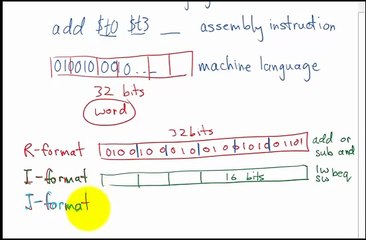 add $t0 $t3 __ assembly instruction
010010010... machine language
32 bits
word
32 bits
R-format 0100100010101010010101001101 add or sub and
I-format 16 bits lw sw beq
J-format